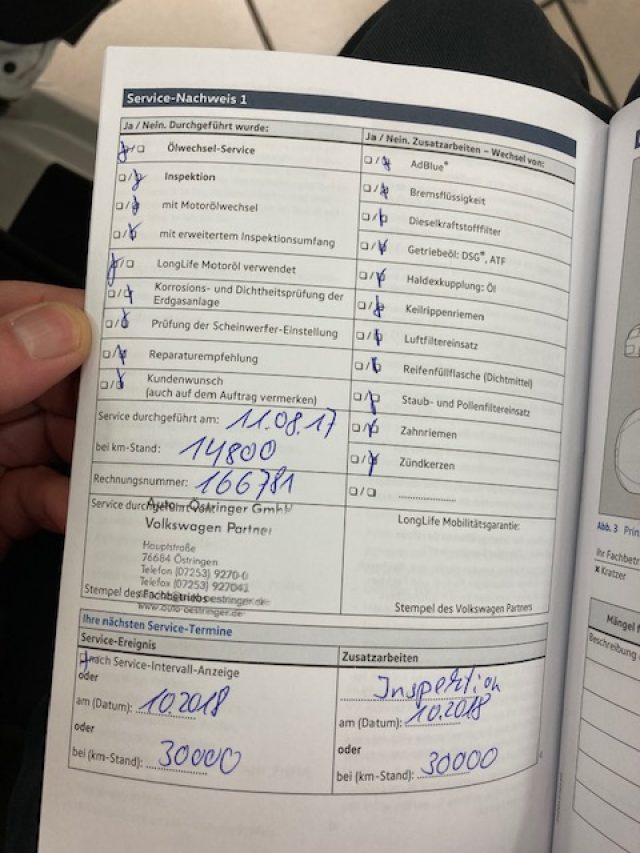 Service-Nachweis 1
Ja / Nein. Durchgeführt wurde:
Ölwechsel-Service
Inspektion
mit Motorölwechsel
mit erweitertem Inspektionsumfang
LongLife Motoröl verwendet
Korrosions- und Dichtheitsprüfung der
Erdgasanlage
Prüfung der Scheinwerfer-Einstellung
Reparaturempfehlung
Kundenwunsch
(auch auf dem Auftrag vermerken)
Service durchgeführt am: 11.08.17
bei km-Stand: 14800
Rechnungsnummer: 166781
Service durchgeführt von:
Auto Östringer GmbH
Volkswagen Partner
Hauptstraße
76684 Östringen
Telefon (07253) 9270-0
Telefax (07253) 927041
Stempel des Fachbetriebs
www.auto-oestringer.de
Ja / Nein. Zusatzarbeiten – Wechsel von:
AdBlue®
Bremsflüssigkeit
Dieselkraftstofffilter
Getriebeöl: DSG®, ATF
Haldexkupplung: Öl
Keilrippenriemen
Luftfiltereinsatz
Reifenfüllflasche (Dichtmittel)
Staub- und Pollenfiltereinsatz
Zahnriemen
Zündkerzen
LongLife Mobilitätsgarantie:
Stempel des Volkswagen Partners
Ihre nächsten Service-Termine
Service-Ereignis
nach Service-Intervall-Anzeige
oder
am (Datum): 10.2018
oder
bei (km-Stand): 30000
Zusatzarbeiten
Inspektion
am (Datum): 10.2018
oder
bei (km-Stand): 30000
Abb. 3 Prin
Ihr Fachbetr
x Kratzer
Mängel
Beschreibung